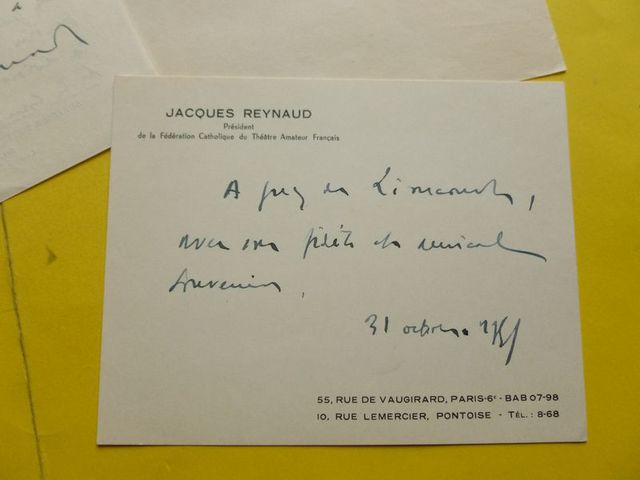 JACQUES REYNAUD
Président
de la Fédération Catholique du Théâtre Amateur Français
A Guy de
avec mon fidèle et amical
souvenir,
31 octobre
55, RUE DE VAUGIRARD, PARIS-6ᵉ - BAB 07-98
10, RUE LEMERCIER, PONTOISE - TÉL. : 8-68